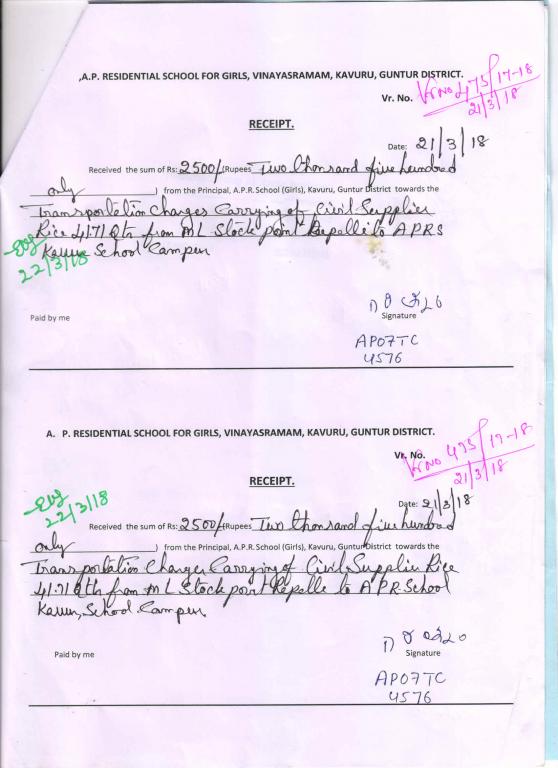 ,A.P. RESIDENTIAL SCHOOL FOR GIRLS, VINAYASRAMAM, KAVURU, GUNTUR DISTRICT.
Vr. No. Vr No 475/17-18
21/3/18
RECEIPT.
Date: 21/3/18
Received the sum of Rs: 2500/- (Rupees Two thousand five hundred
only ) from the Principal, A.P.R.School (Girls), Kavuru, Guntur District towards the
Transportation Charges Carrying of Civil Supplies
Rice 41.71 Qth from M L Stock point Repelle to A P R S
School Campus
22/3/18
Paid by me
Signature
AP07TC
4576
A. P. RESIDENTIAL SCHOOL FOR GIRLS, VINAYASRAMAM, KAVURU, GUNTUR DISTRICT.
Vr. No.
Vr No 475/17-18
21/3/18
RECEIPT.
22/3/18
Date: 21/3/18
Received the sum of Rs: 2500/- (Rupees Two thousand five hundred
only ) from the Principal, A.P.R.School (Girls), Kavuru, Guntur District towards the
Transportation Charges Carrying of Civil Supplies Rice
41.71 Qth from M L Stock point Repelle to A P R School
School Campus
Paid by me
Signature
AP07TC
4576